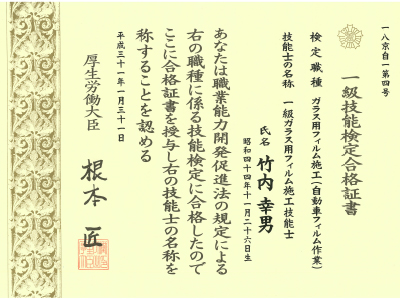 一八京自一第四号
一級技能検定合格証書
検定職種　ガラス用フィルム施工（自動車フィルム作業）
技能士の名称　一級ガラス用フィルム施工技能士
氏名　竹内　幸男
昭和四十四年十一月二十六日生
あなたは職業能力開発促進法の規定による
右の職種に係る技能検定に合格したので
ここに合格証書を授与し右の技能士の名称を
称することを認める
平成三十一年一月三十一日
厚生労働大臣　根本　匠